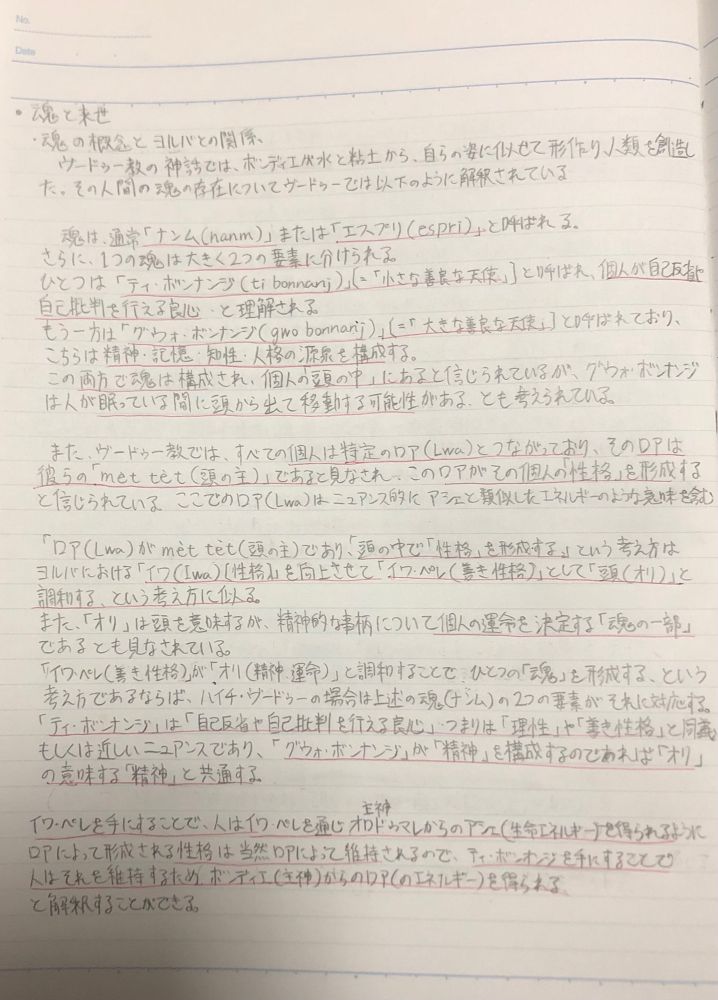 No.
Date
• 魂と来世
・魂の概念とヨルバとの関係、
ヴードゥー教の神話では、ボンディエが水と粘土から、自らの姿に似せて形作り、人類を創造し
た。その人間の魂の存在についてヴードゥーでは以下のように解釈されている
魂は、通常「ナンム(nanm)」または「エスプリ(espri)」と呼ばれる。
さらに、1つの魂は大きく2つの要素に分けられる。
ひとつは「ティ・ボンナンジ(ti bonnanj)」(=「小さな善良な天使」)と呼ばれ、個人が自己反省や
自己批判を行える良心 と理解される。
もう一方は「グウォ・ボンナンジ(gwo bonnanj)」(=「大きな善良な天使」)と呼ばれており、
こちらは精神・記憶・知性・人格の源泉を構成する。
この両方で魂は構成され、個人の「頭の中」にあると信じられているが、グウォ・ボンナンジ
は人が眠っている間に頭から出て移動する可能性がある、とも考えられている。
また、ヴードゥー教では、すべての個人は特定のロア(Lwa)とつながっており、そのロアは
彼らの「mèt tèt(頭の主)」であると見なされ、このロアがその個人の「性格」を形成する
と信じられている ここでのロア(Lwa)はニュアンス的にアシェと類似したエネルギーのような意味を含む
「ロア(Lwa)がmèt tèt(頭の主)であり、「頭の中で「性格」を形成する」という考え方は
ヨルバにおける「イワ(Iwa)(性格)」を向上させて「イワ・ペレ(善き性格)」として「頭(オリ)」と
調和する、という考え方に似る。
また、「オリ」は頭を意味するが、精神的な事柄について個人の運命を決定する「魂の一部」
であるとも見なされている。
「イワ・ペレ(善き性格)が「オリ(精神・運命)」と調和することで、ひとつの「魂」を形成する、という
考え方であるならば、ハイチ・ヴードゥーの場合は上述の魂(ナンム)の2つの要素がそれに対応する。
「ティ・ボンナンジ」は「自己反省や自己批判を行える良心」・つまりは「理性」や「善き性格」と同義
もしくは近しいニュアンスであり、「グウォ・ボンナンジ」が「精神」を構成するのであれば「オリ」
の意味する「精神」と共通する。
主神
イワ・ペレを手にすることで、人はイワ・ペレを通じオロドゥマレからのアシェ(生命エネルギー)を得られるように
ロアによって形成される性格は当然ロアによって維持されるので、ティ・ボンナンジを手にすることで
人はそれを維持するため ボンディエ(主神)からのロア(のエネルギー)を得られる
と解釈することができる。